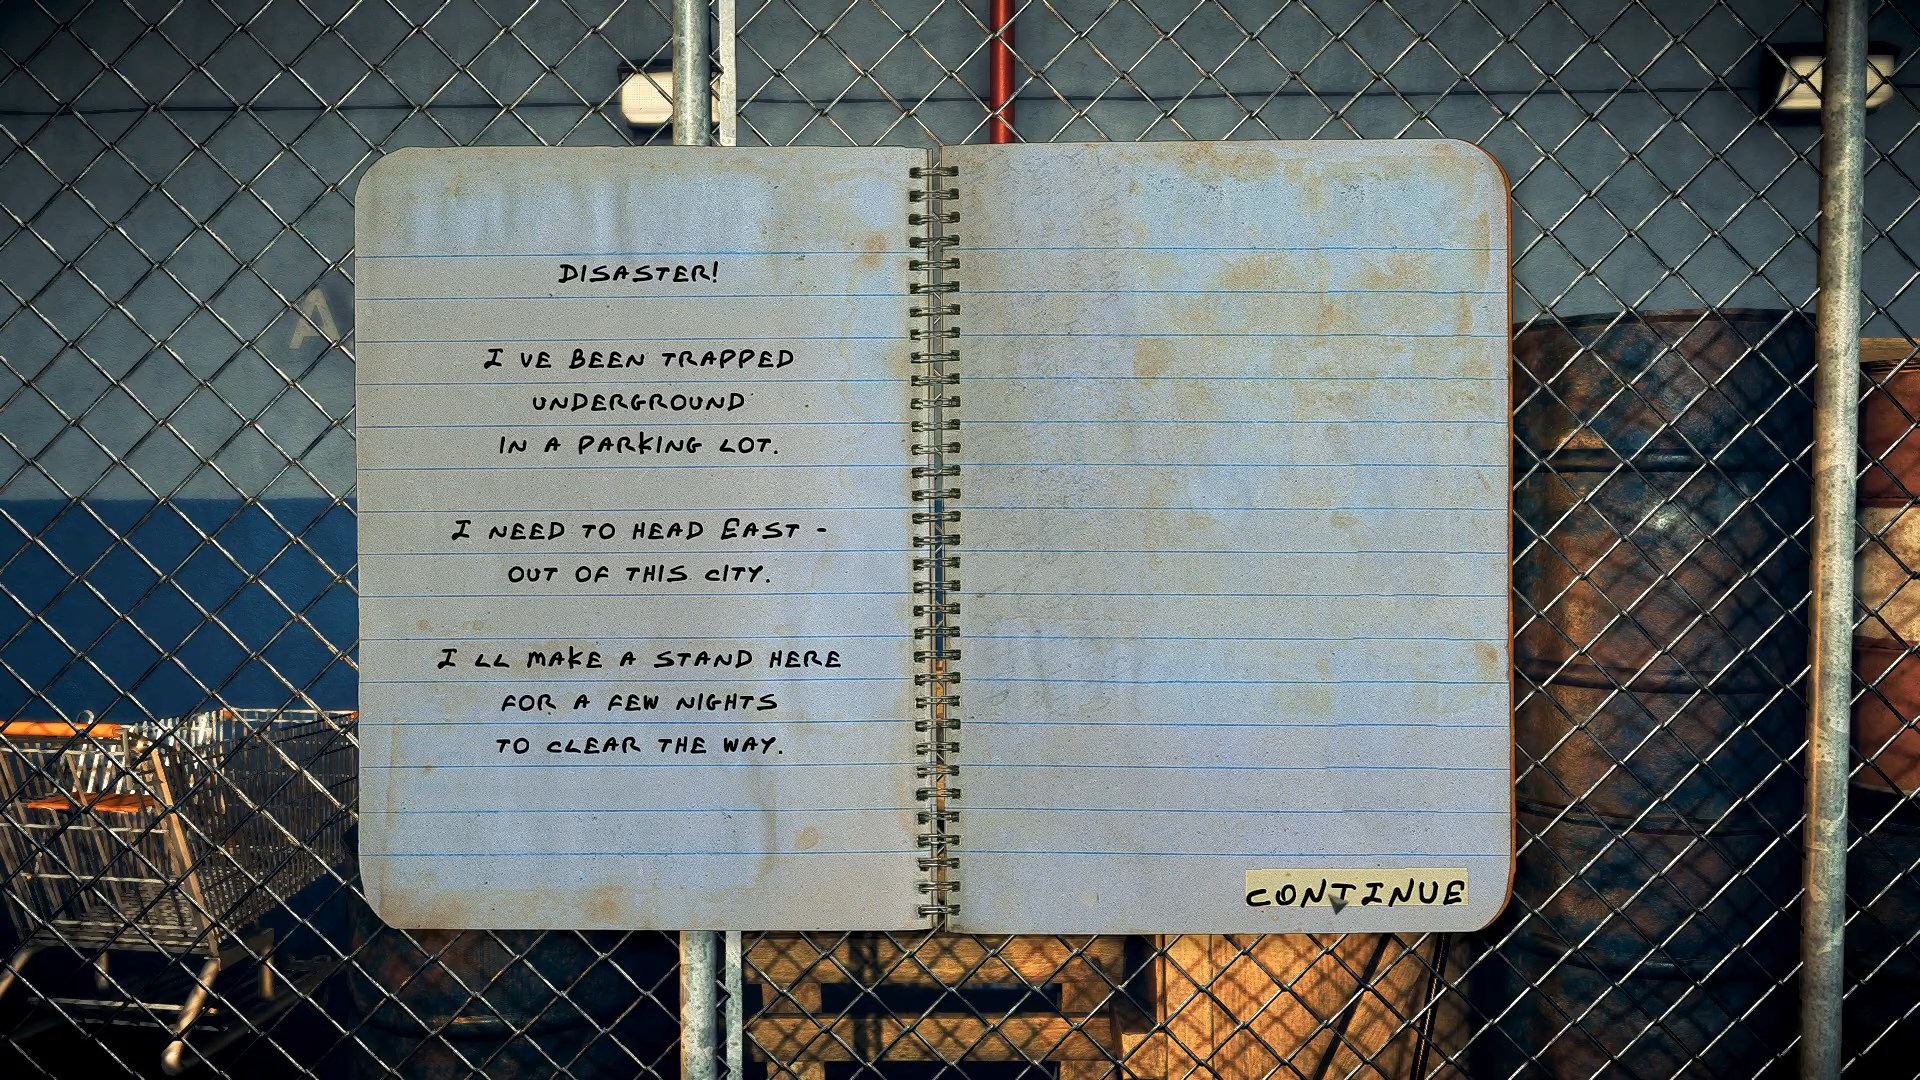 DISASTER!
I VE BEEN TRAPPED
UNDERGROUND
IN A PARKING LOT.
I NEED TO HEAD EAST -
OUT OF THIS CITY.
I LL MAKE A STAND HERE
FOR A FEW NIGHTS
TO CLEAR THE WAY.
CONTINUE
A